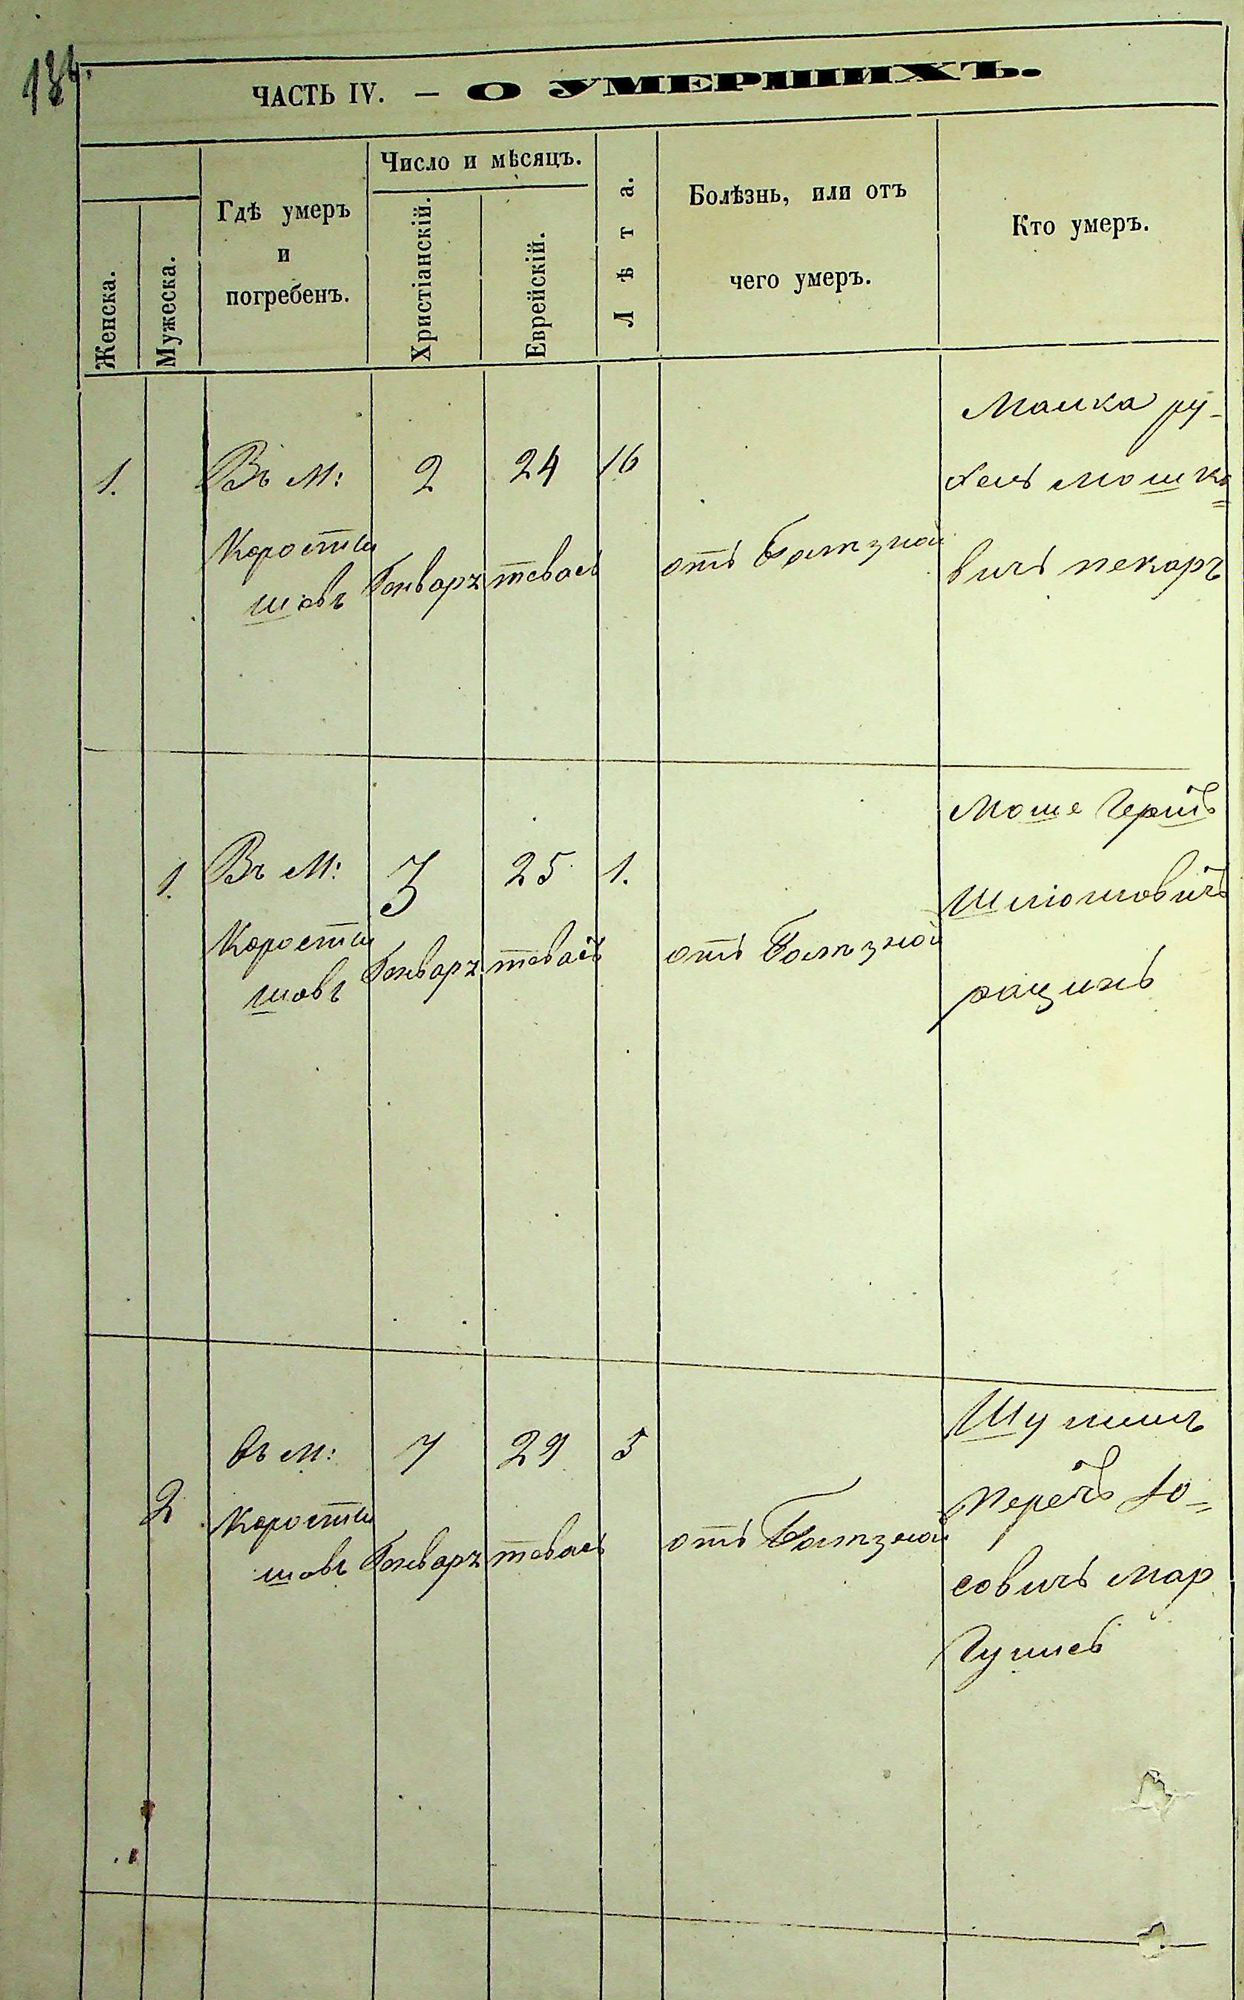 134.
ЧАСТЬ IV. — О УМЕРШИХЪ.
Женска.
Мужеска.
Гдѣ умеръ
и
погребенъ.
Число и мѣсяцъ.
Христіанскій.
Еврейскій.
Лѣта.
Болѣзнь, или отъ
чего умеръ.
Кто умеръ.
1.
Въ М:
Корости
шовъ
2
Генваря
24
тевась
16
отъ
Малка ру-
хель мошко=
вичъ пекаръ
1.
Въ М:
Корости
шовъ
3
Генваря
25
тевасъ
1.
отъ
Моше Гершъ
Шліомовичъ
рацинъ
2
Въ М:
Корости
шовъ
7
Генваря
29
тевасъ
5
отъ
Шулимъ
перецъ Іо=
совичъ мар
гулисъ